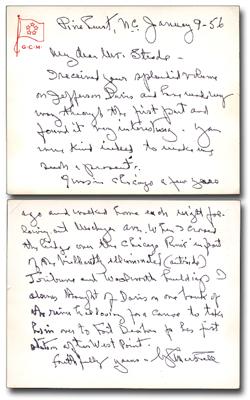 G-C-M-
Pinehurst, N.C. January 9-56
My dear Mr. Strode -
I received your splendid volume
on Jefferson Davis and have read my
way through the first part and
found it very interesting. You
were kind indeed to make me
such a present.
I was in Chicago a few years
ago and walked home each night fol-
lowing out Michigan Ave. When I crossed
the bridge over the Chicago River in front
of the brilliantly illuminated (outside)
Tribune and Woolworth buildings I
always thought of Davis on one bank of
the river hallooing for a canoe to take
him over to Fort Dearborn for his first
station after West Point.
Faithfully yours - G. C. Marshall